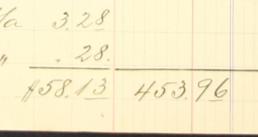 /a 3.28
" .28.
$58.13 453.96